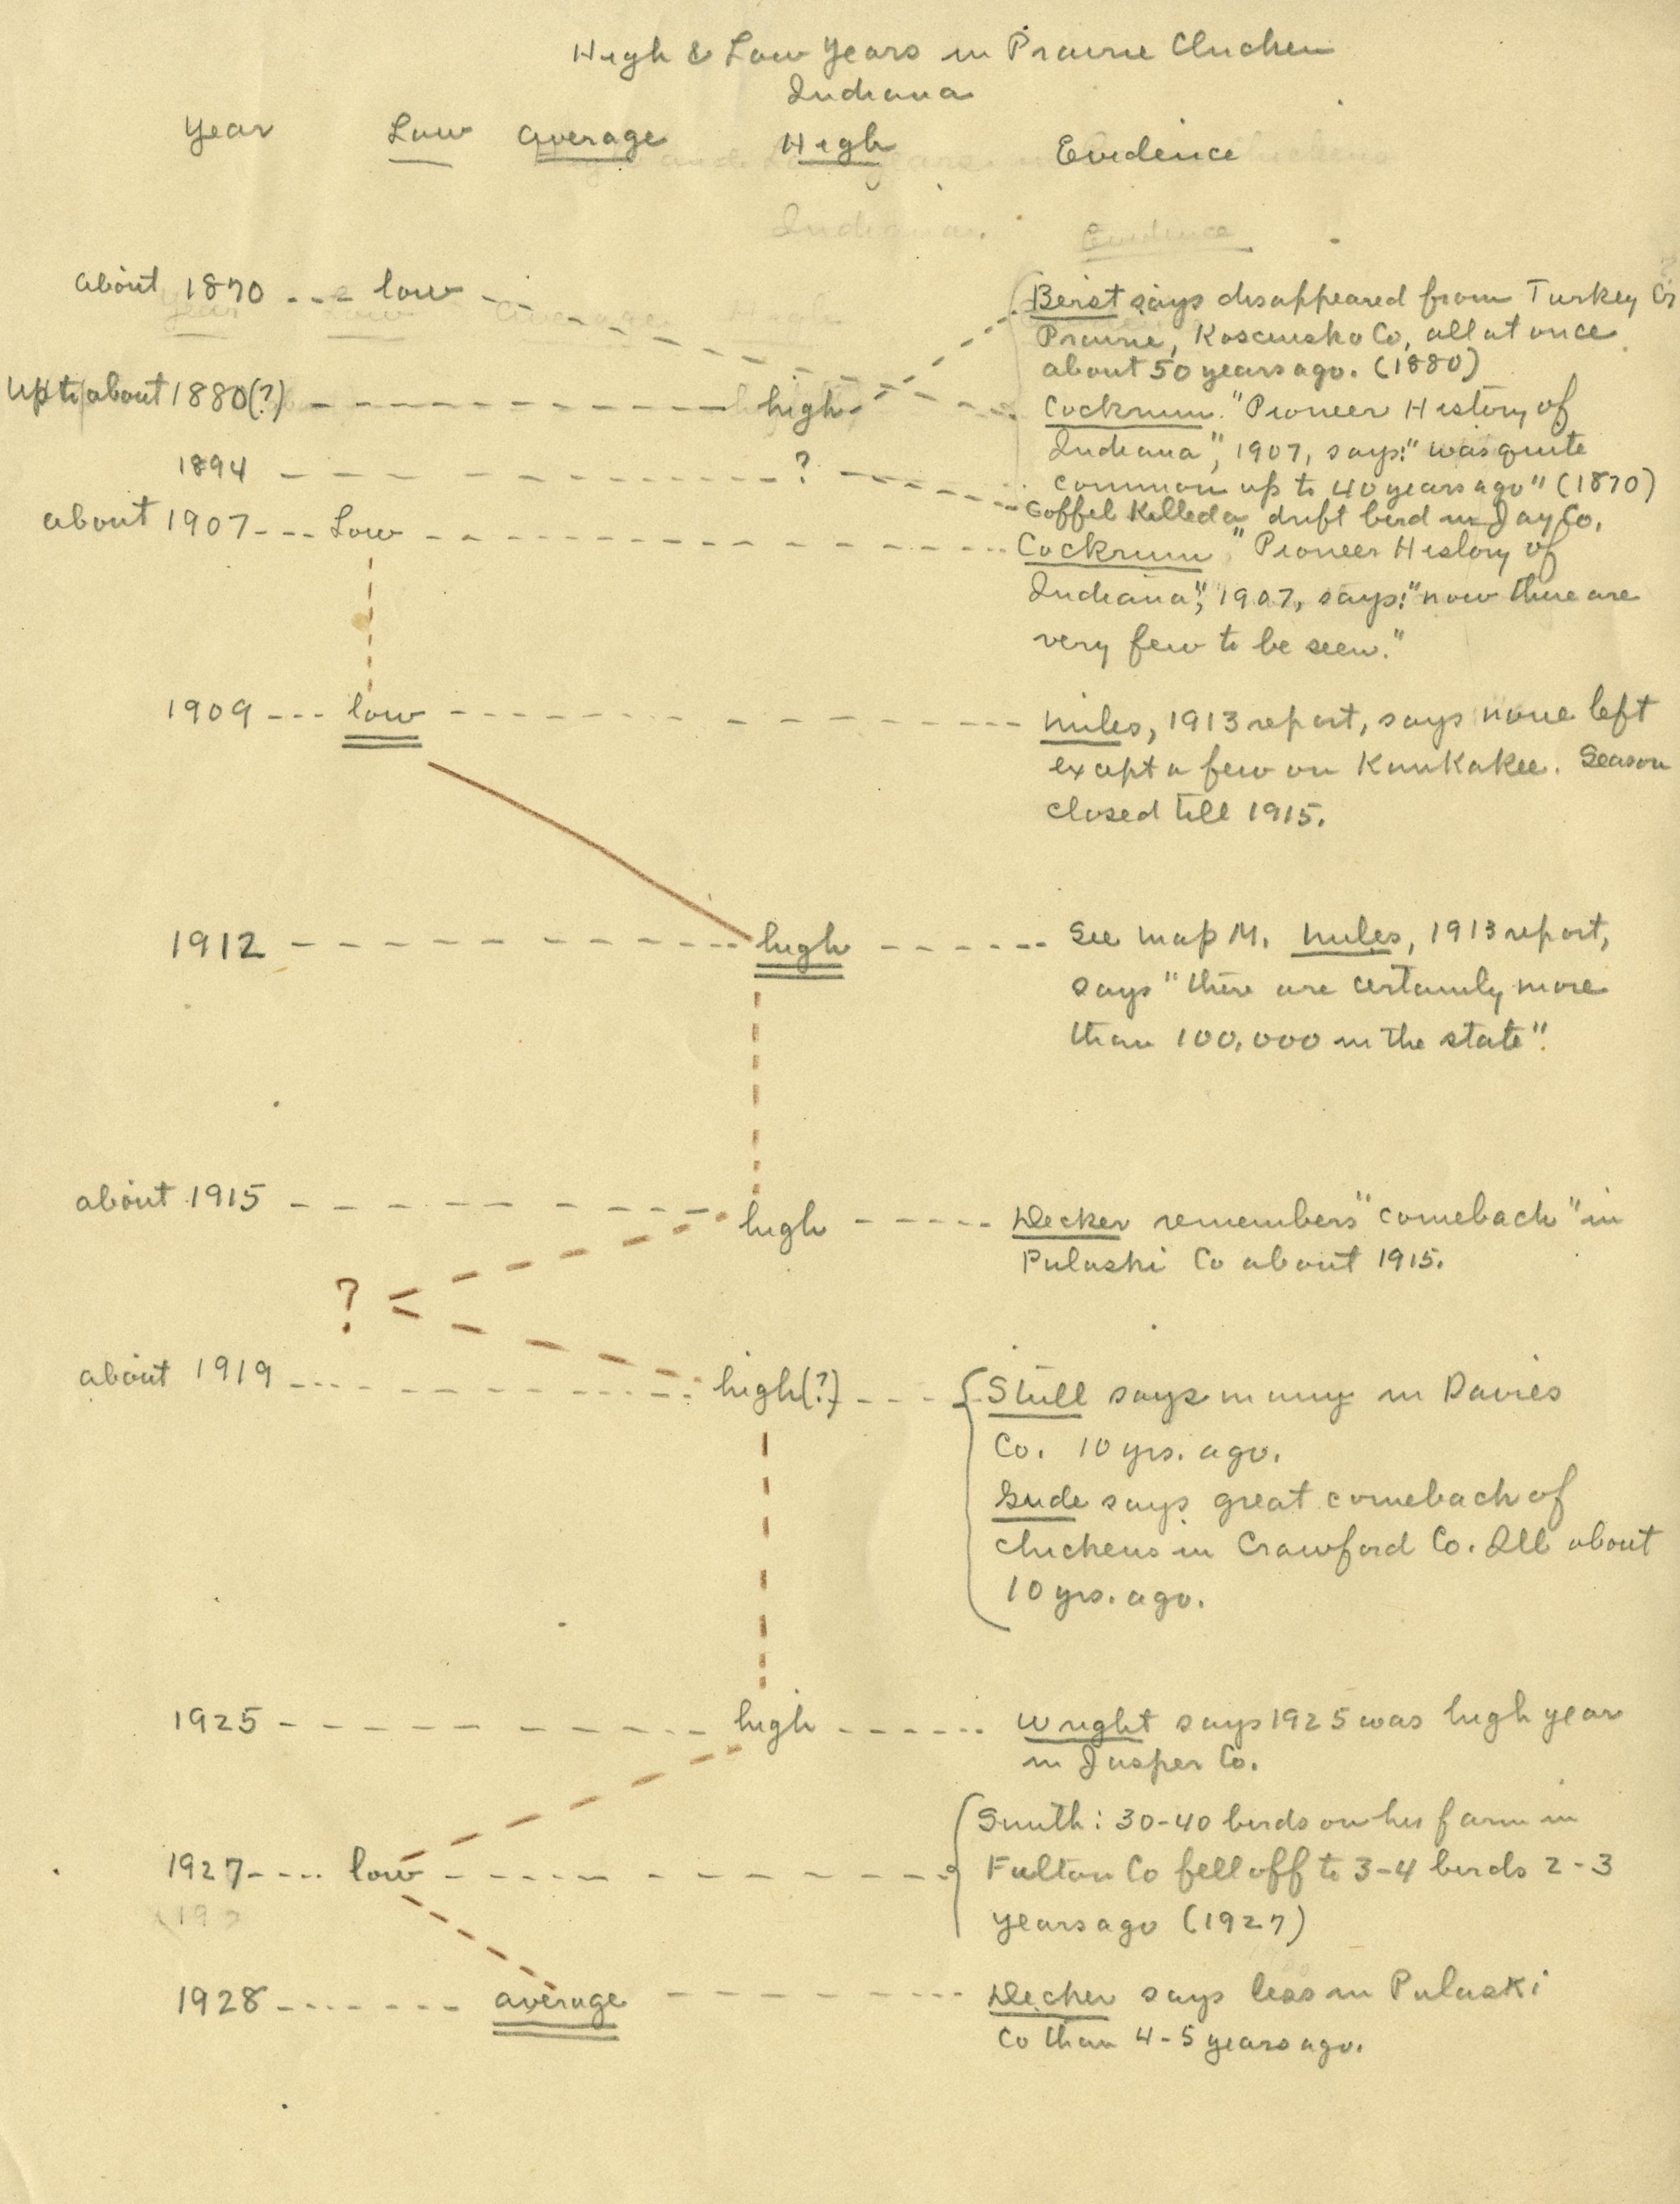 High & Low Years in Prairie Chicken
Indiana
Year Low Average High Evidence
Indiana. Evidence
Year Low Average High
about 1870 low
Berst says disappeared from Turkey Cr
Prairie, Kosciusko Co, all at once
about 50 years ago. (1880)
Up to about 1880(?) high
Cockrum. "Pioneer History of
Indiana", 1907, says: "was quite
common up to 40 years ago" (1870)
1894 ?
Goffel Killed a drift bird in Jay Co.
about 1907 Low
Cockrum "Pioneer History of
Indiana", 1907, says: "now there are
very few to be seen."
1909 low
Miles, 1913 report, says none left
except a few on Kankakee. Season
closed till 1915.
1912 high
See map M. Miles, 1913 report,
says "there are certainly more
than 100,000 in the state".
about 1915 high
Decker remembers "comeback" in
Pulaski Co about 1915.
?
about 1919 high(?)
Stull says many in Davies
Co. 10 yrs. ago.
Gude says great comeback of
chickens in Crawford Co. Ill about
10 yrs. ago.
1925 high
Wright says 1925 was high year
in Jasper Co.
1927 low
Smith: 30-40 birds on his farm in
Fulton Co fell off to 3-4 birds 2-3
years ago (1927)
192
1928 average
Decker says less in Pulaski
Co than 4-5 years ago.